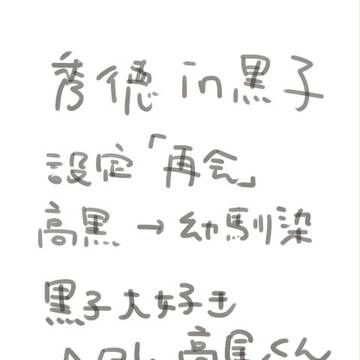 秀徳in黒子
設定「再会」
高黒→幼馴染
黒子大好き
高尾くん